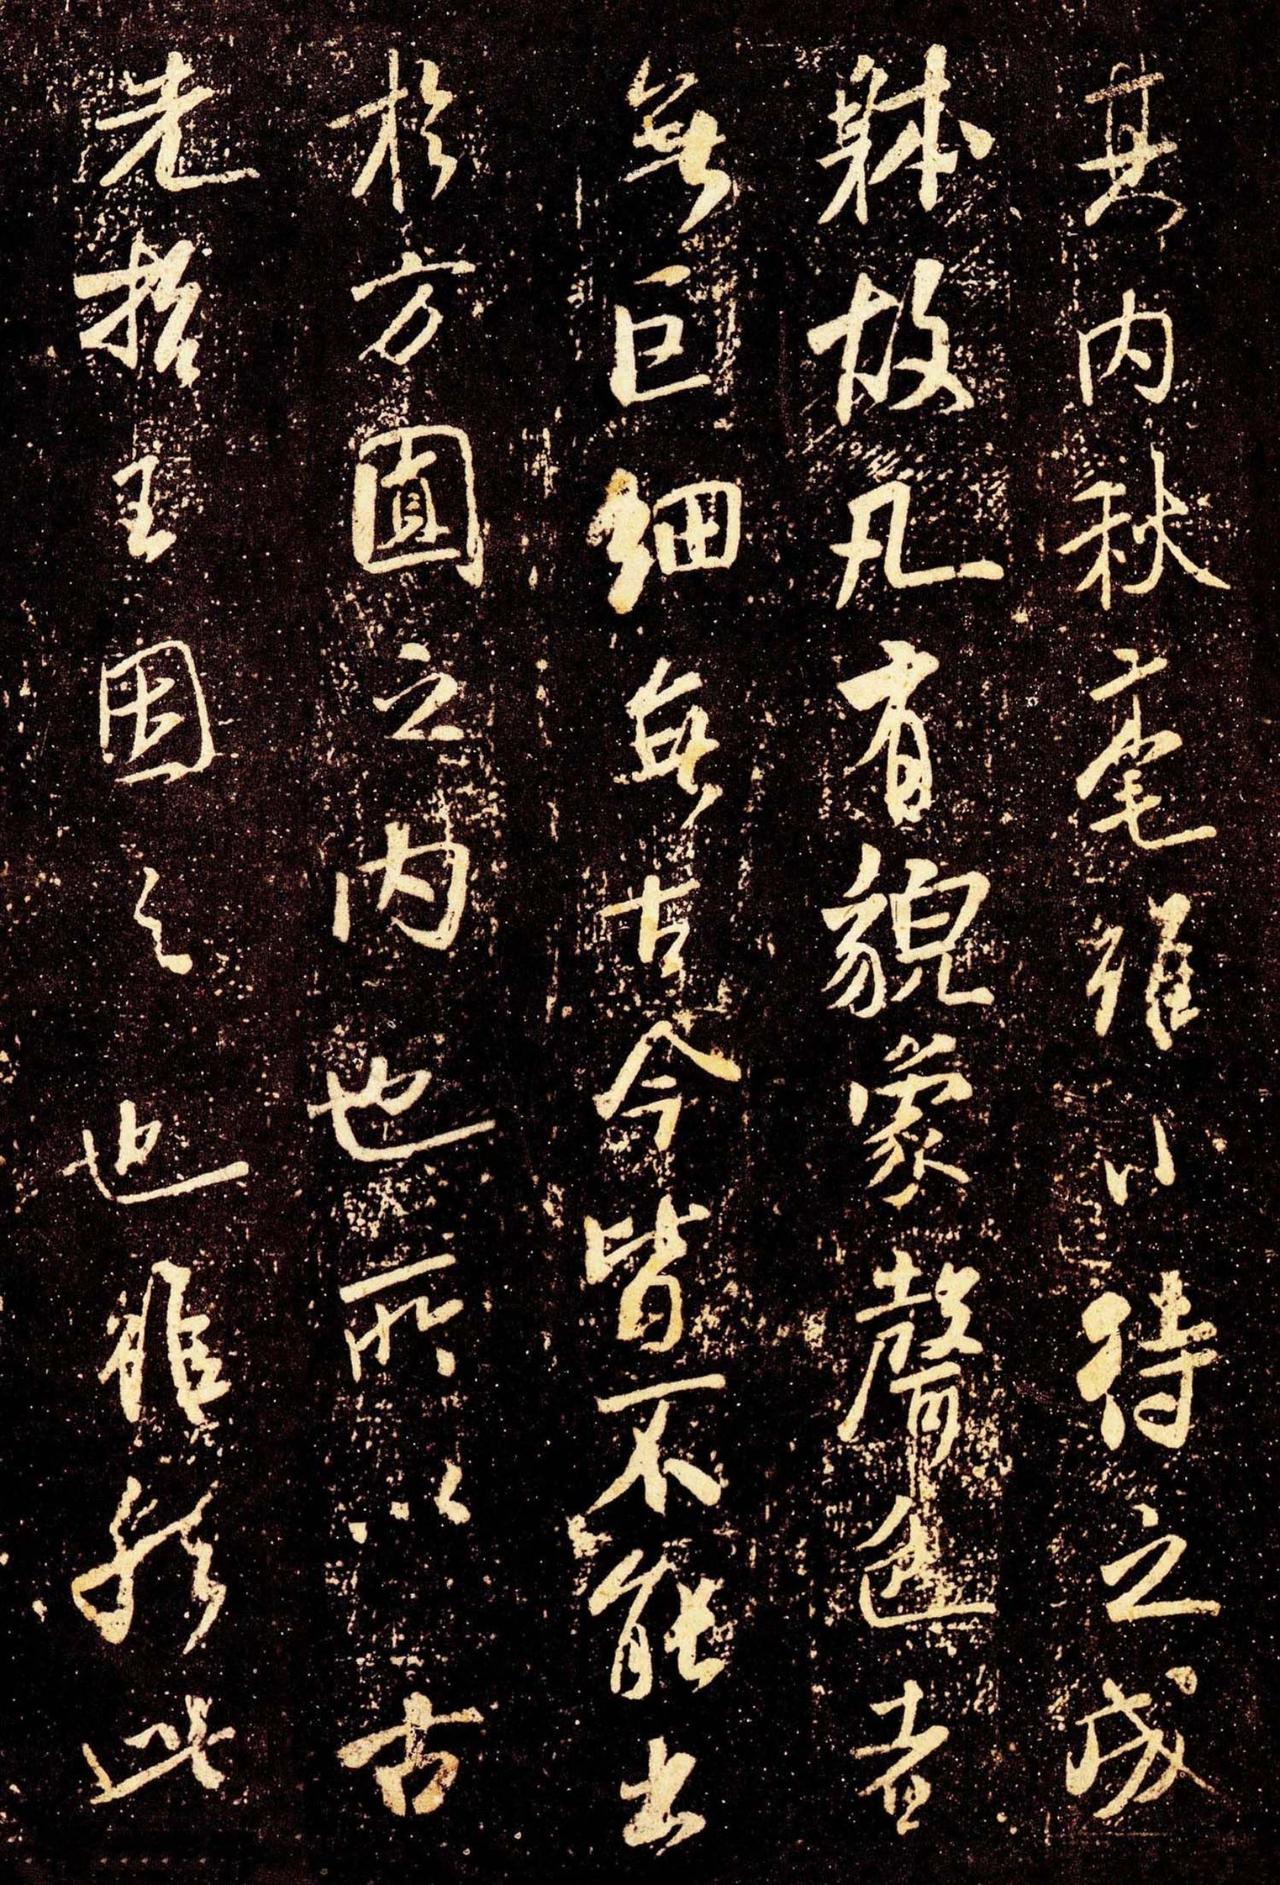 其内秋毫雖小待之成
躰故凡有貌象聲色者
無巨細無古今皆不能出
於方圓之内也所以古
先拓王因之也雖然此